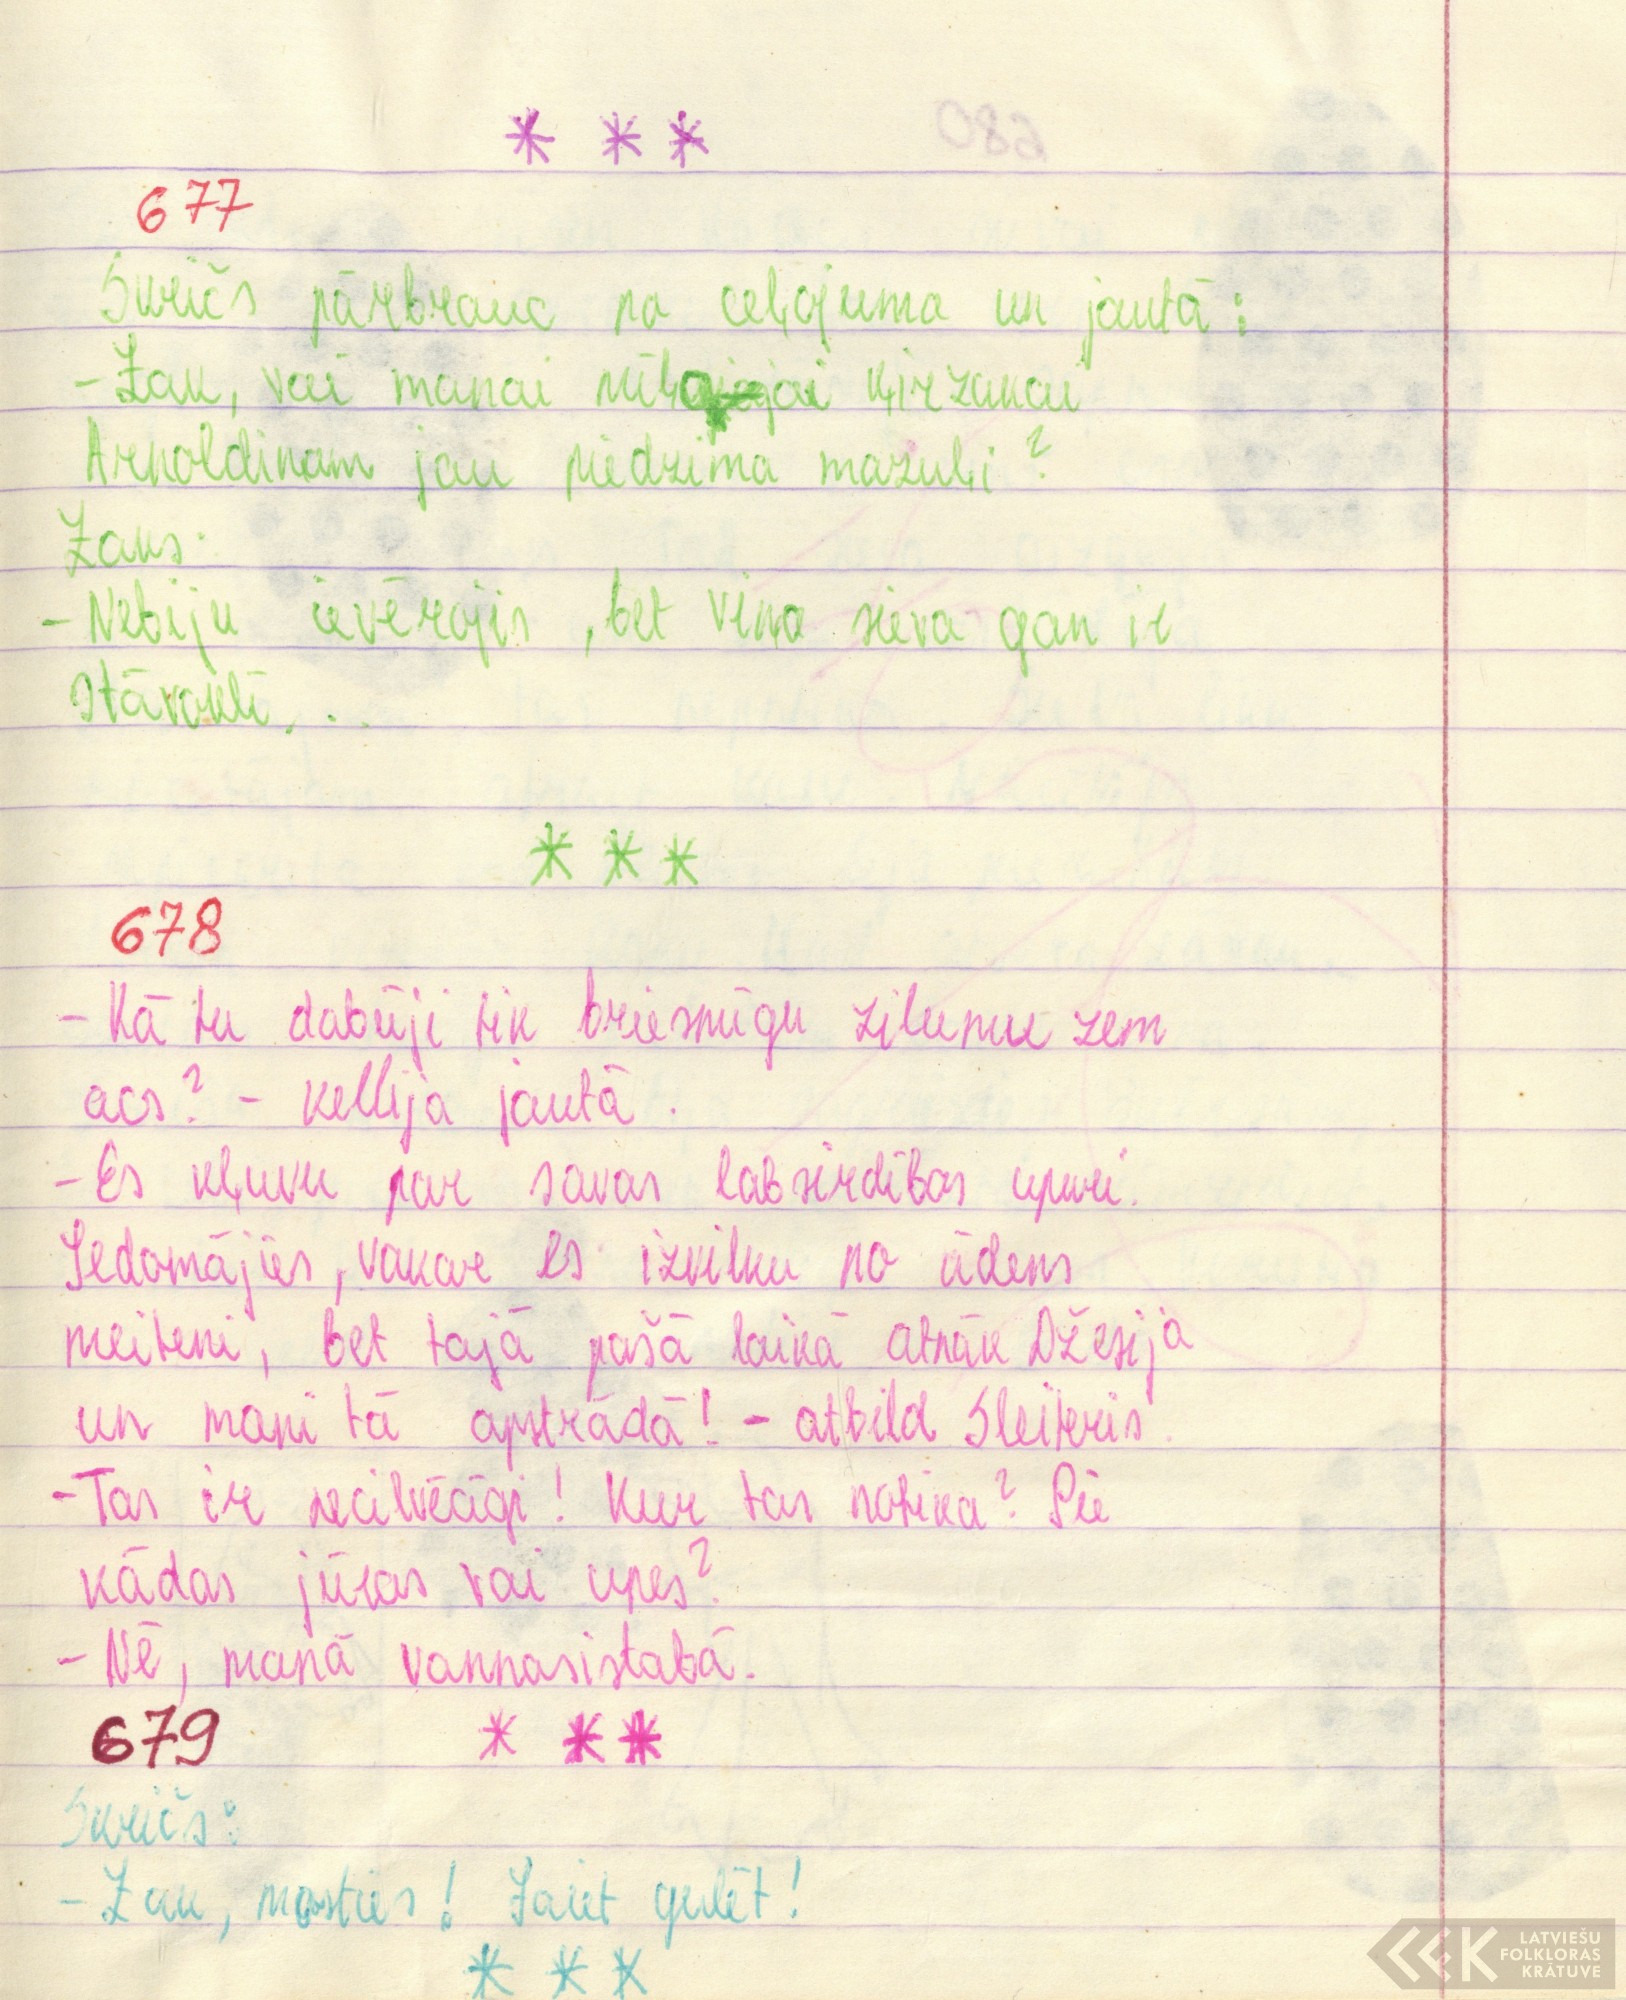 * * *
677
Skričs pārbrauc no ceļojuma un jautā:
- Zak, vai manai mīļajai ķirzakai
Arnoldinam jau piedzima mazuļi?
Zaks.
- Nebiju ievērojis, bet viņa sieva gan ir
stāvoklī...
* * *
678
- Kā tu dabūji tik briesmīgu zilumu zem
acs? - Kellija jautā.
- Es kļuvu par savas labsirdības upuri.
Iedomājies, vakar es izvilku no ūdens
meiteni, bet tajā pašā laikā atnāk Džesija
un mani tā apstrādā! - atbild Sleiteris.
- Tas ir necilvēcīgi! Kur tas notika? Pie
kādas jūras vai upes?
- Nē, manā vannasistabā.
679 * * *
Skričs:
- Zak, mosties! Jāiet gulēt!
* * *
LATVIEŠU
FOLKLORAS
KRĀTUVE